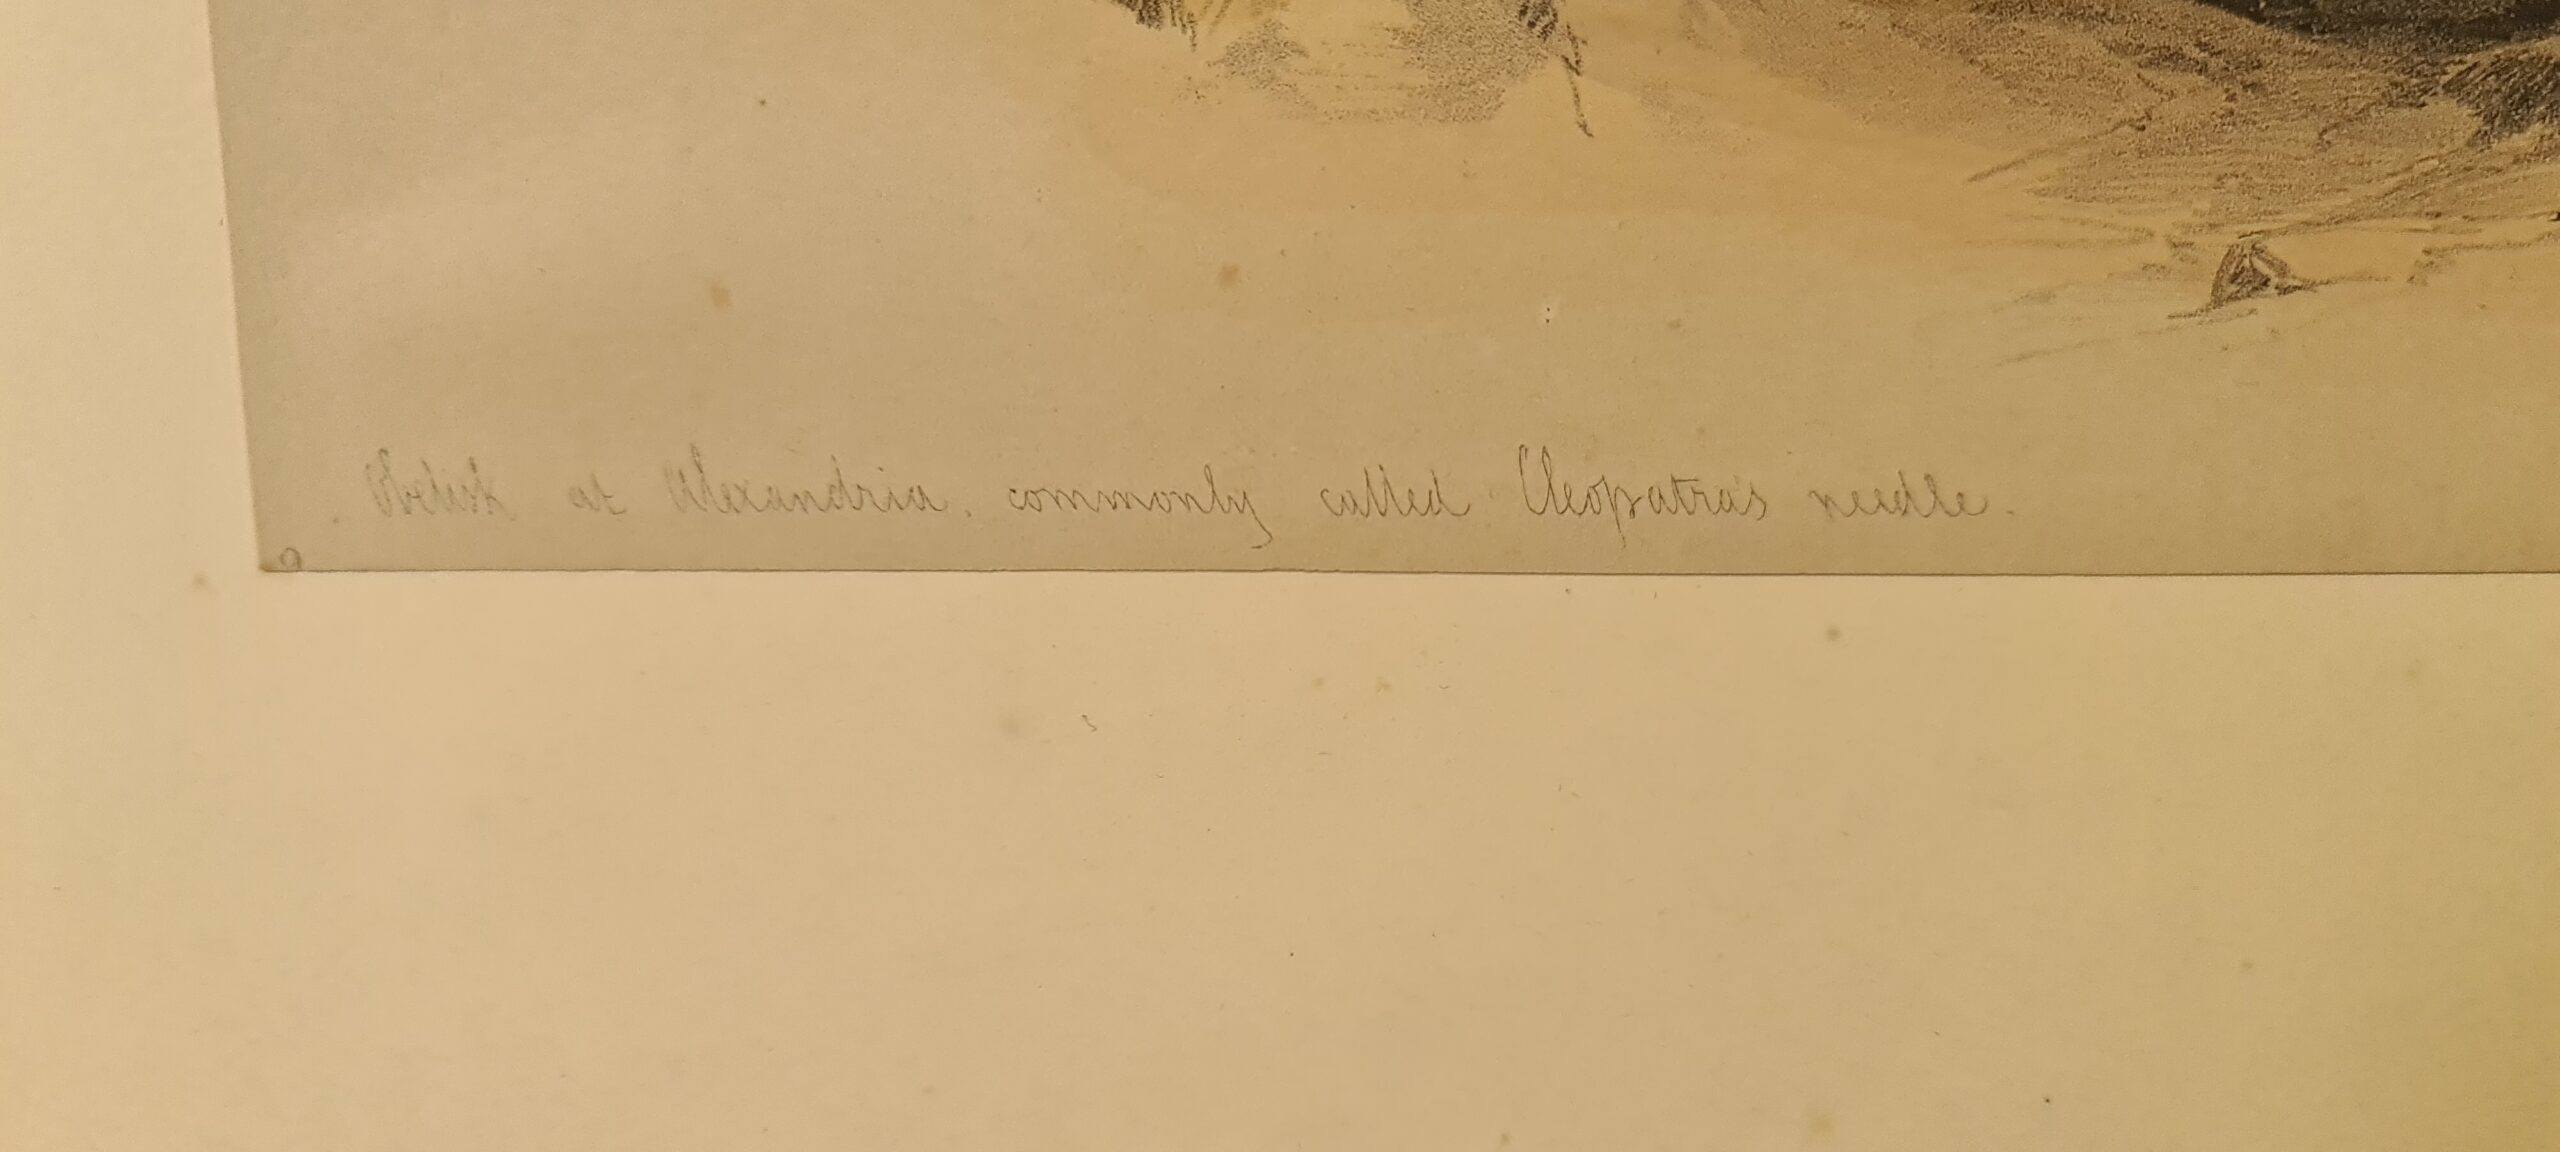 Obelisk at Alexandria. commonly called Cleopatra's needle.